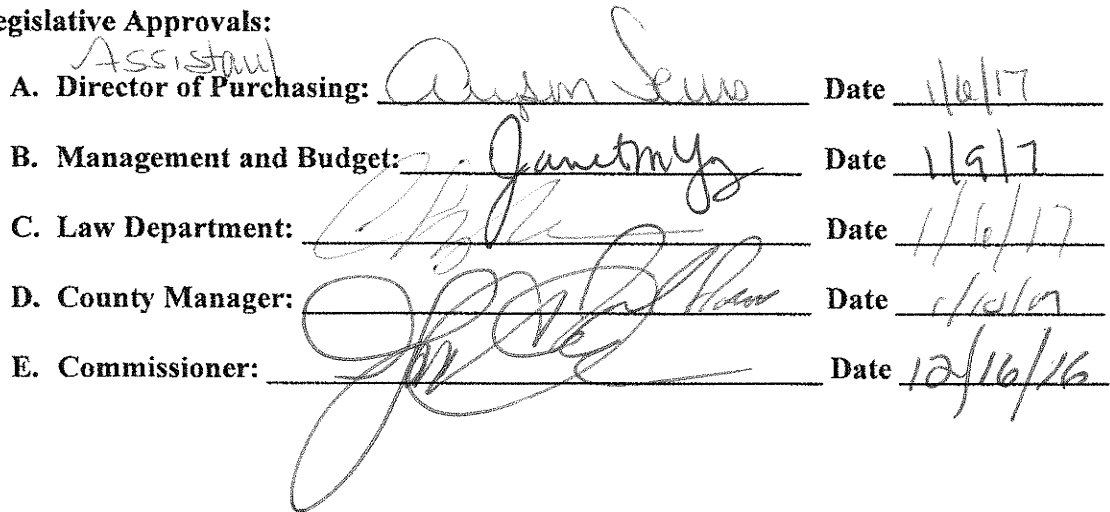 egislative Approvals:
Assistant
A. Director of Purchasing: Date 1/6/17
B. Management and Budget: Date 1/9/7
C. Law Department: Date 1/6/17
D. County Manager: Date
E. Commissioner: Date 12/16/16